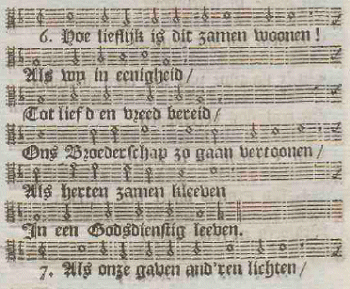 6. Hoe lieflijk is dit zamen woonen!
Als wy in eenigheid/
Tot lief'd en vreed bereid/
Ons Broederschap zo gaan vertoonen/
Als herten zamen kleeven
In een Godsdienstig leeven.
7. Als onze gaven and'ren lichten/